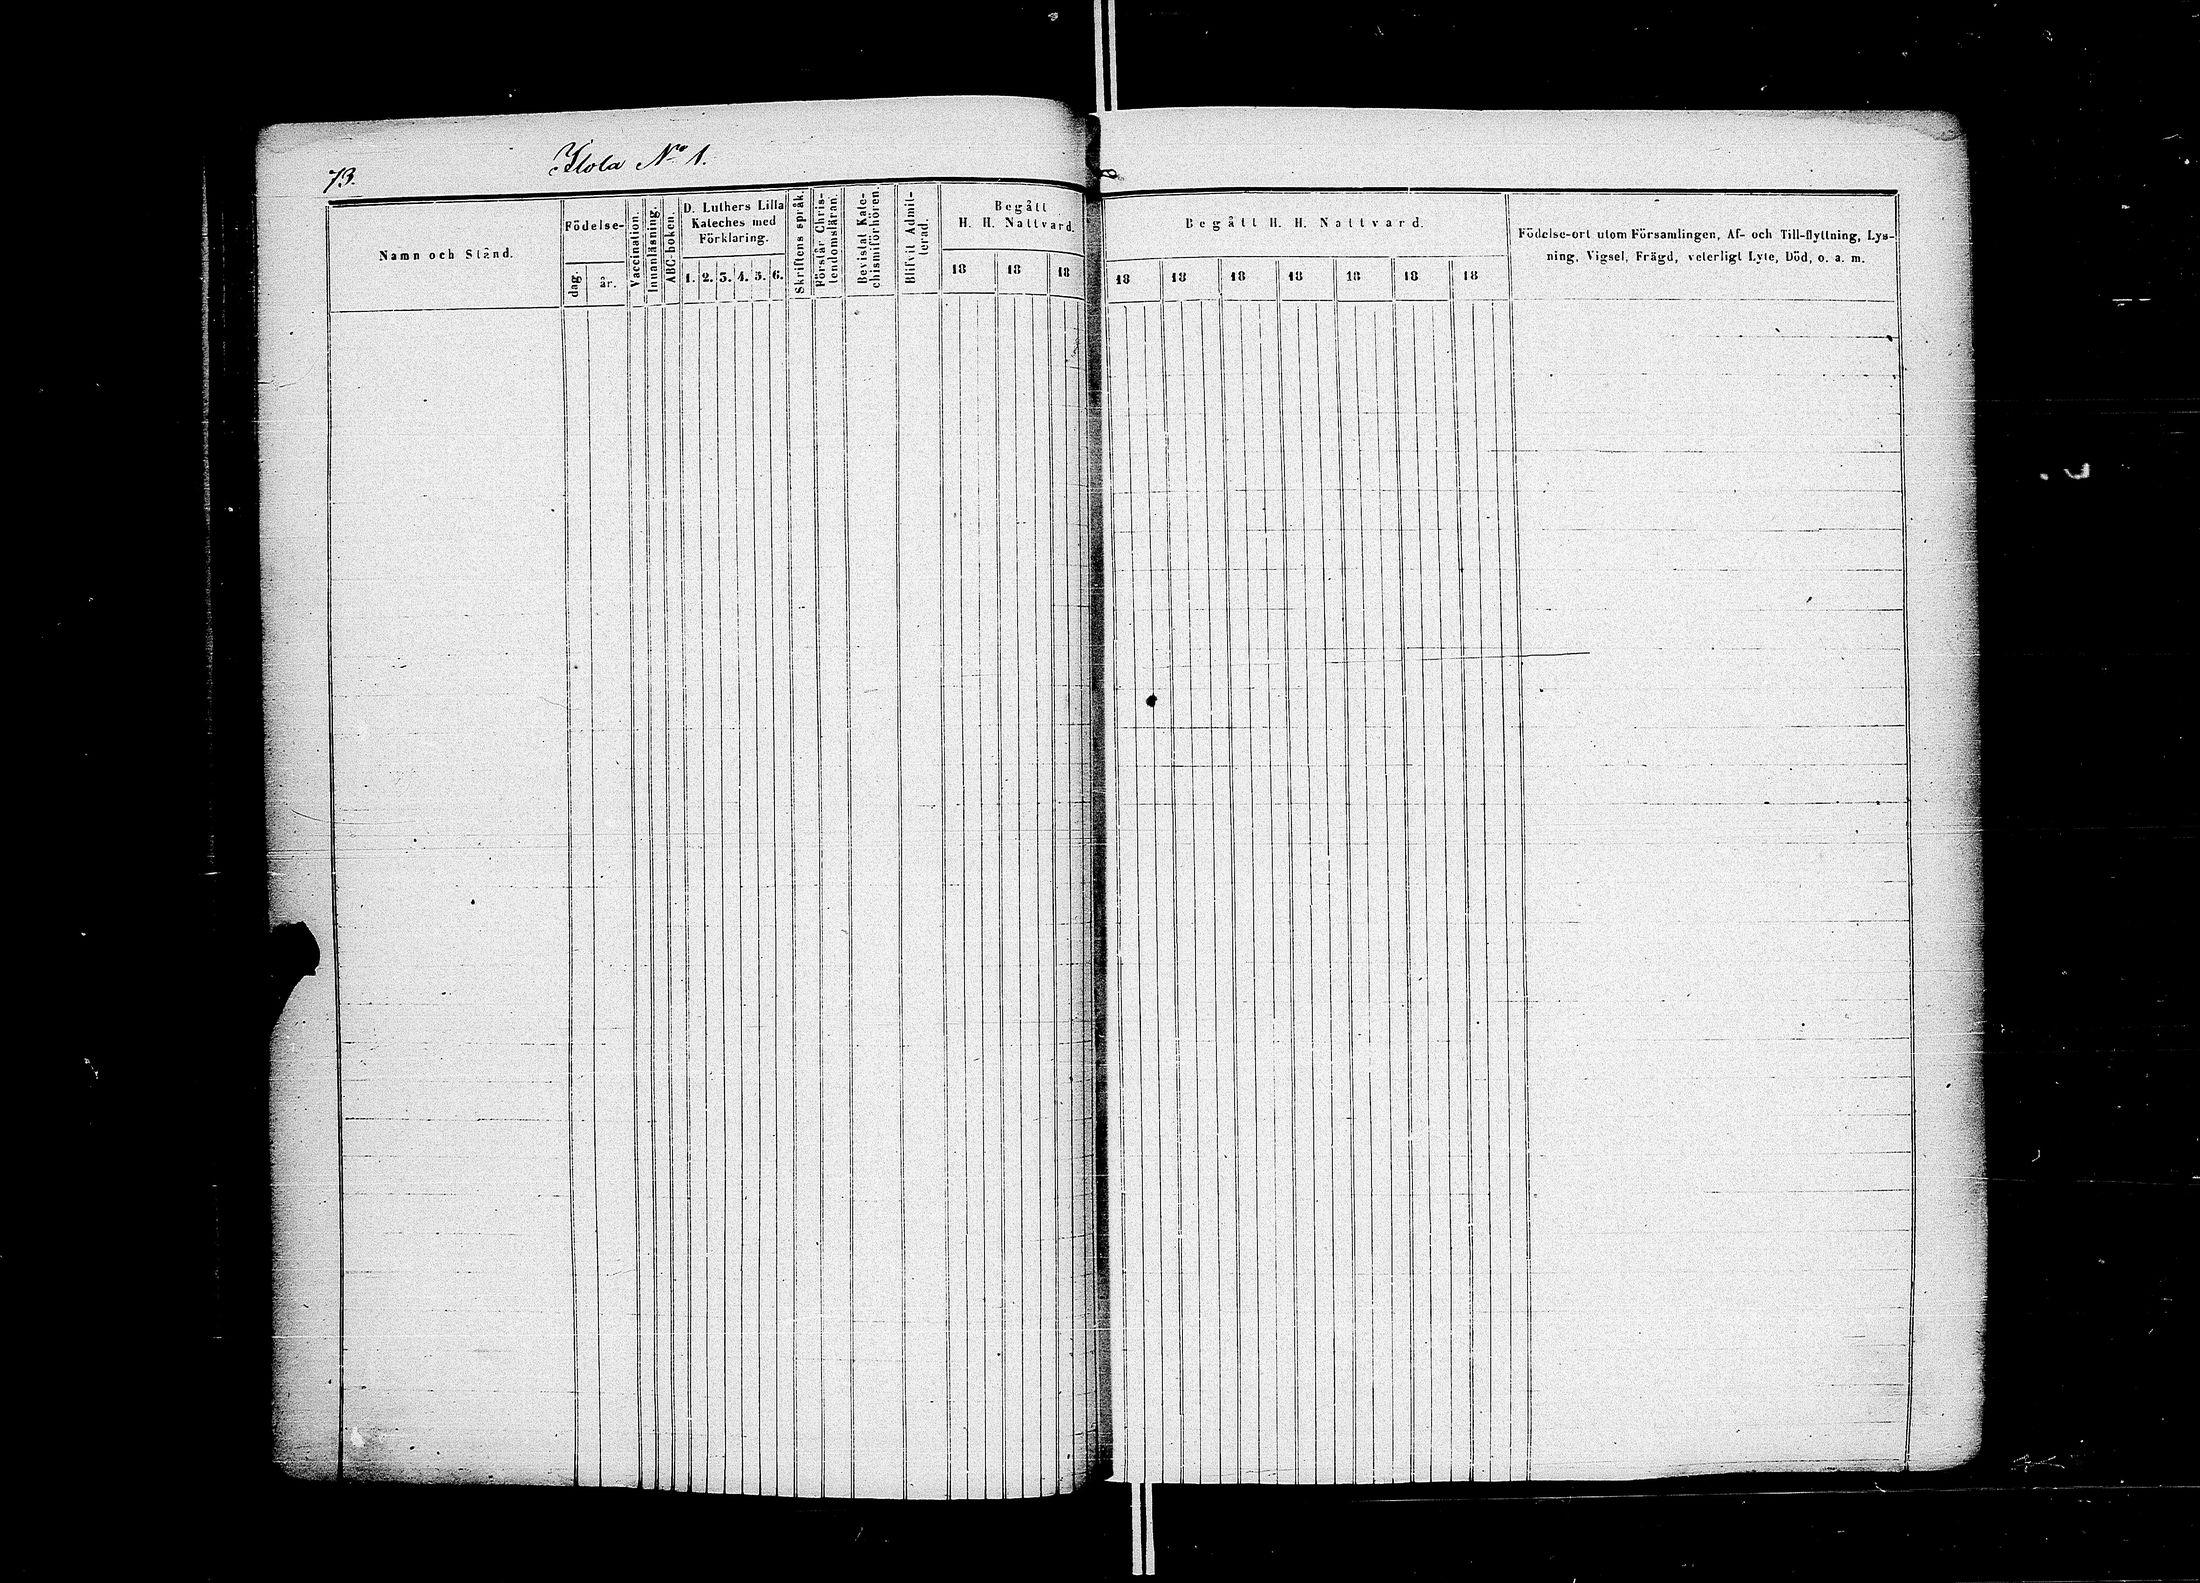 73.
Ylola No 1.
Namn och Stånd.
Födelse-
dag.
år.
Vaccination.
Innanläsning.
ABC-boken.
D. Luthers Lilla
Kateches med
Förklaring.
1. 2. 3. 4. 5. 6.
Skriftens språk.
Förstår Chris-
tendomsläran.
Bevistat Kate-
chismiförhören.
Blifvit Admit-
terad.
Begått
H. H. Nattvard.
18 18 18
Begått H. H. Nattvard.
18 18 18 18 18 18 18
Födelse-ort utom Församlingen, Af- och Till-flyttning, Lys-
ning, Vigsel, Frägd, veterligt Lyte, Död, o. a. m.